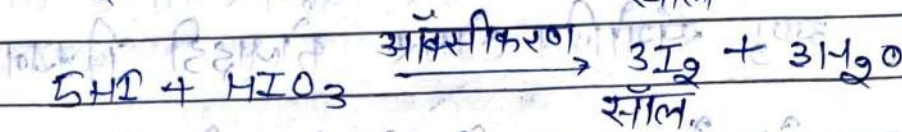 5HI + HIO₃ ऑक्सीकरण → 3I₂ + 3H₂O
सॉल.